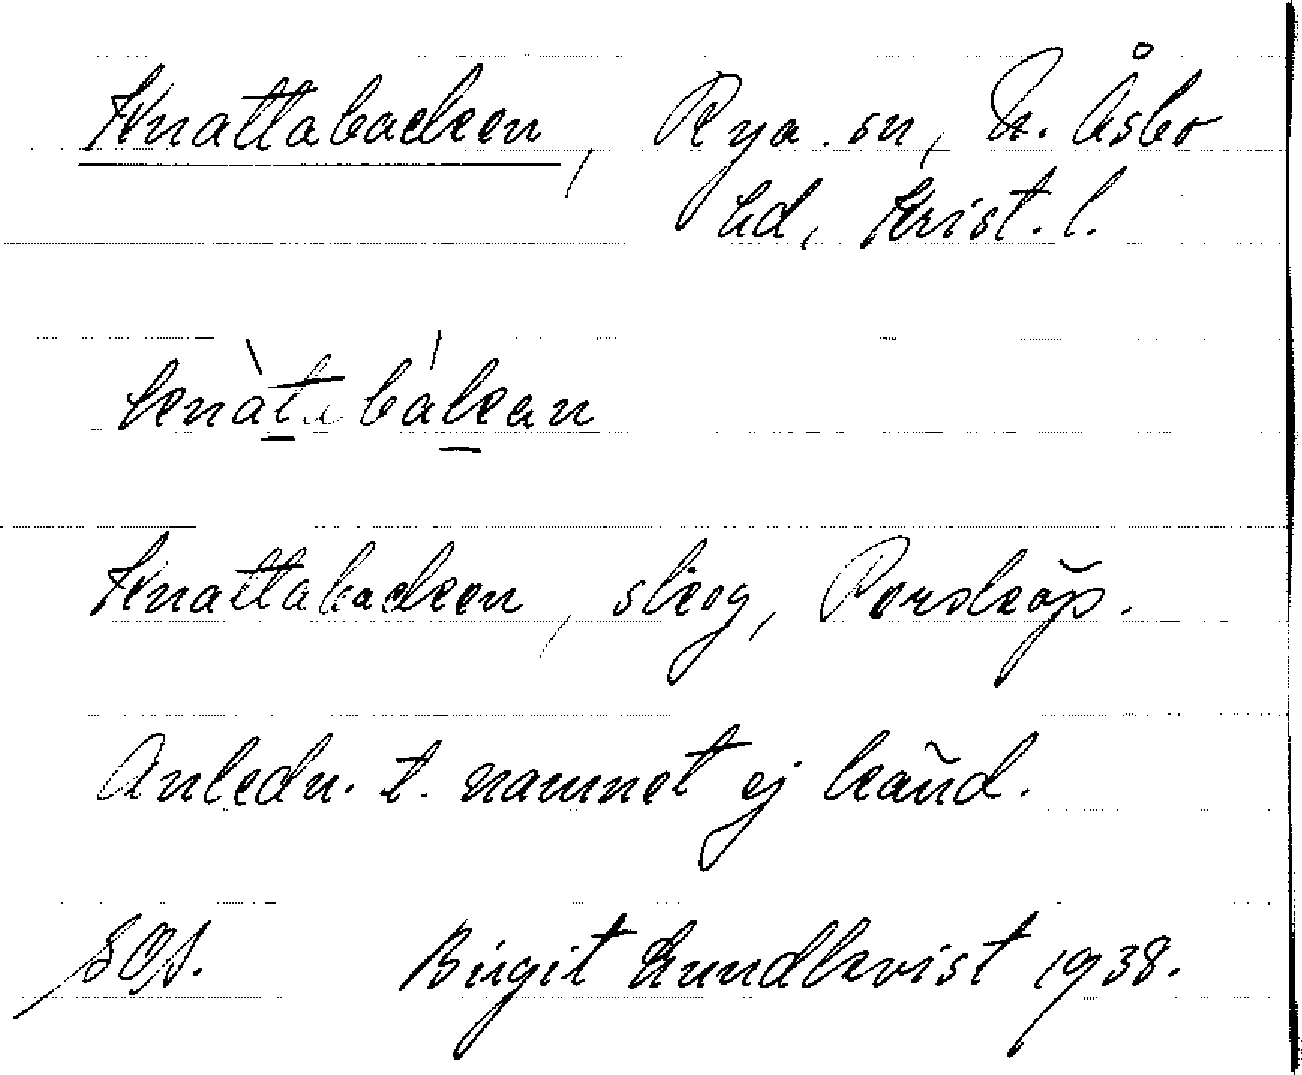 Knattabacken, Rya sn, N. Åsbo
hd, Krist. l.
knàtabákan
Knattabacken, skog, Porsköp.
Anledn. t. namnet ej känd.
Birgit Lundkvist 1938.